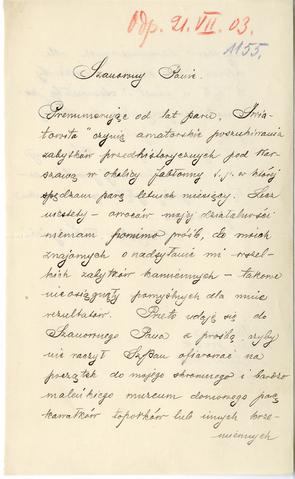 Odp. 21. VII. 03.
1155.
Szanowny Panie.
Prenumerując od lat paru „Świa-
towita" czynię amatorskie poszukiwania
zabytków przedhistorycznych pod War-
szawą w okolicy Jabłonny i. j. w której
spędzam parę letnich miesięcy. Lecz
niestety – owoców mojej działalności
niemam pomimo próśb, do moich
znajomych o nadsyłanie mi wszel-
kich zabytków kamiennych – takowe
nieosiągnęły pomyślnych dla mnie
rezultatów. Przeto udaję się do
Szanownego Pana z prośbą, czyby
nie raczył SzPan ofiarować na
początek do mojego skromnego i bardzo
maleńkiego muzeum domowego parę
kawałków toporków lub innych krze-
miennych